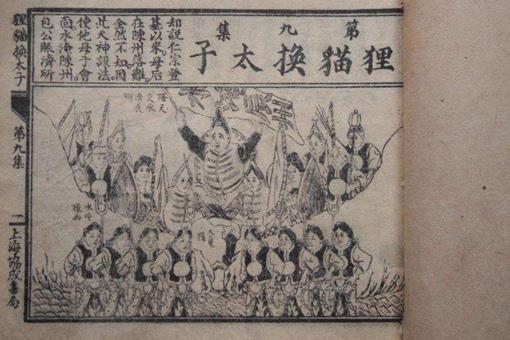 第九集
狸貓換太子
却說仁宗登
基以來母后
在陳州落難
全然不知因
此天神設法
使他母子會
面水淹陳州
包公賑濟所
水淹陳州
狸貓換太子
第九集
一
上海協成書局